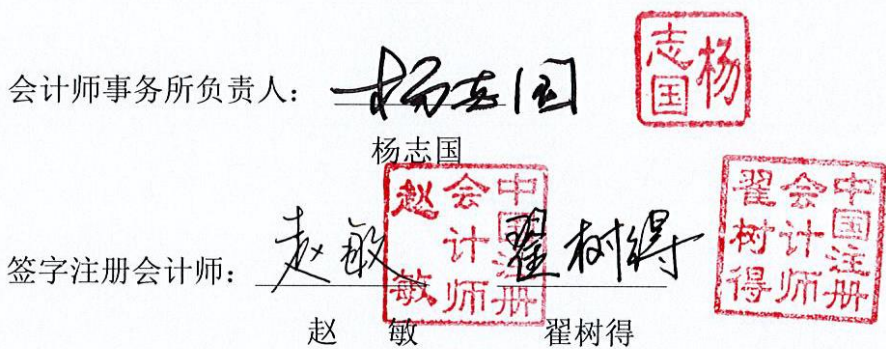 会计师事务所负责人： 杨志国 杨志国
杨志国
签字注册会计师： 赵敏 翟树得
中国注册会计师赵敏
中国注册会计师翟树得
赵 敏 翟树得